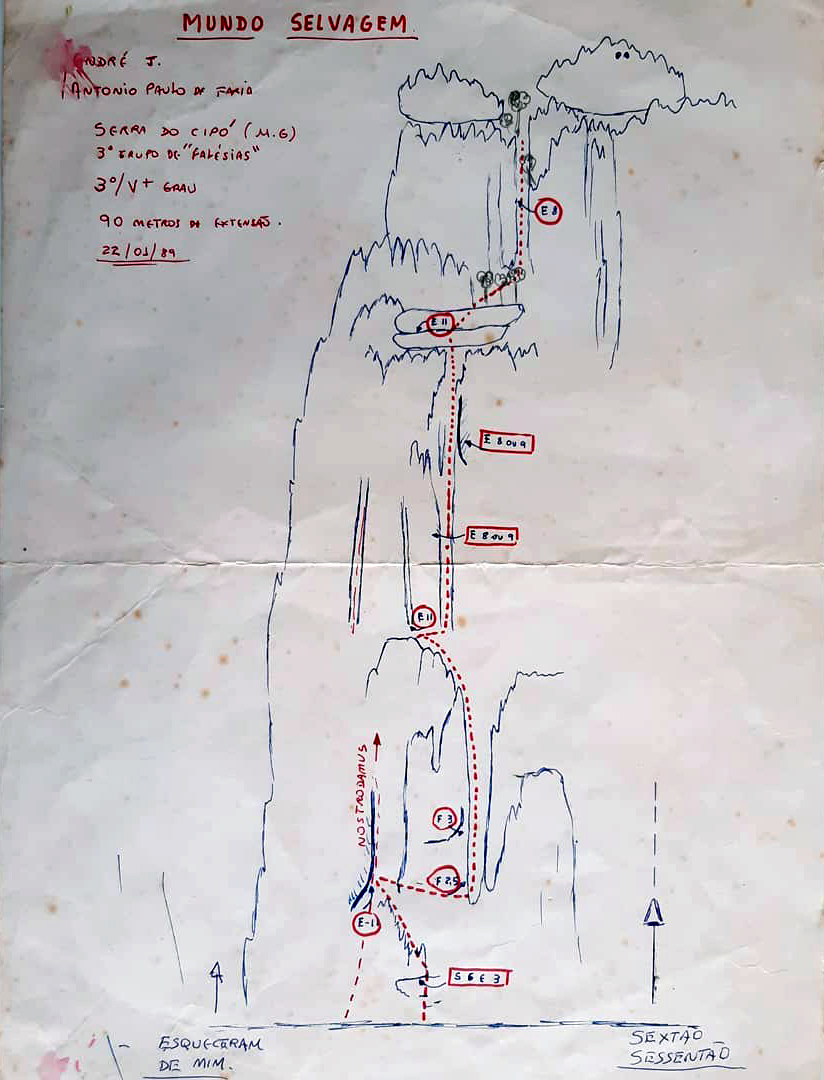 MUNDO SELVAGEM
ANDRÉ J.
ANTONIO PAULO DE FARIA
SERRA DO CIPÓ (M.G)
3º GRUPO DE "FALÉSIAS"
3º/V+ GRAU
90 METROS DE EXTENSÃO.
22/01/89
E 8
E 11
E 8 OU 9
E 8 OU 9
E 11
NOSTRODAMUS
F 3
F 2,5
E-1
S 6 E 3
ESQUECERAM
DE MIM.
SEXTÃO
SESSENTÃO